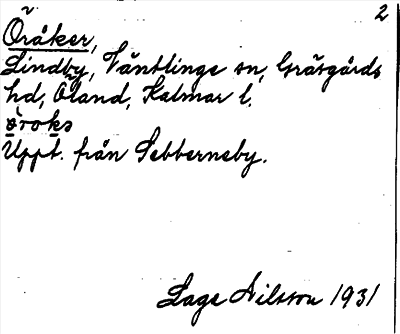 2
Öråker,
Lindby, Ventlinge sn, Gräsgårds
hd, Öland, Kalmar l.
Uppt. från Sebberneby.
Lage Nilsson 1931